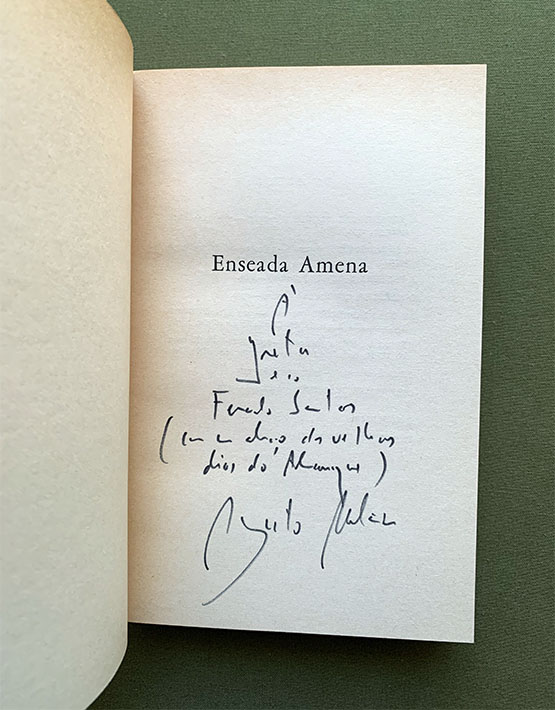 Enseada Amena
À
Greta
e ao
Fernando Santos
(com um abraço dos velhos
dias do Almanaque)
Augusto Abelaira